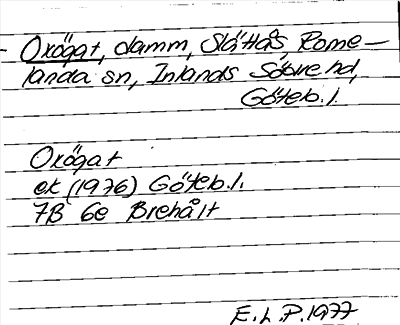 Oxögat, damm, Slåttås, Rome-
landa sn, Inlands Södre hd,
Göteb. l.
Oxögat
ek (1976) Göteb. l.
7B 6e Brehålt
E. L. P. 1977